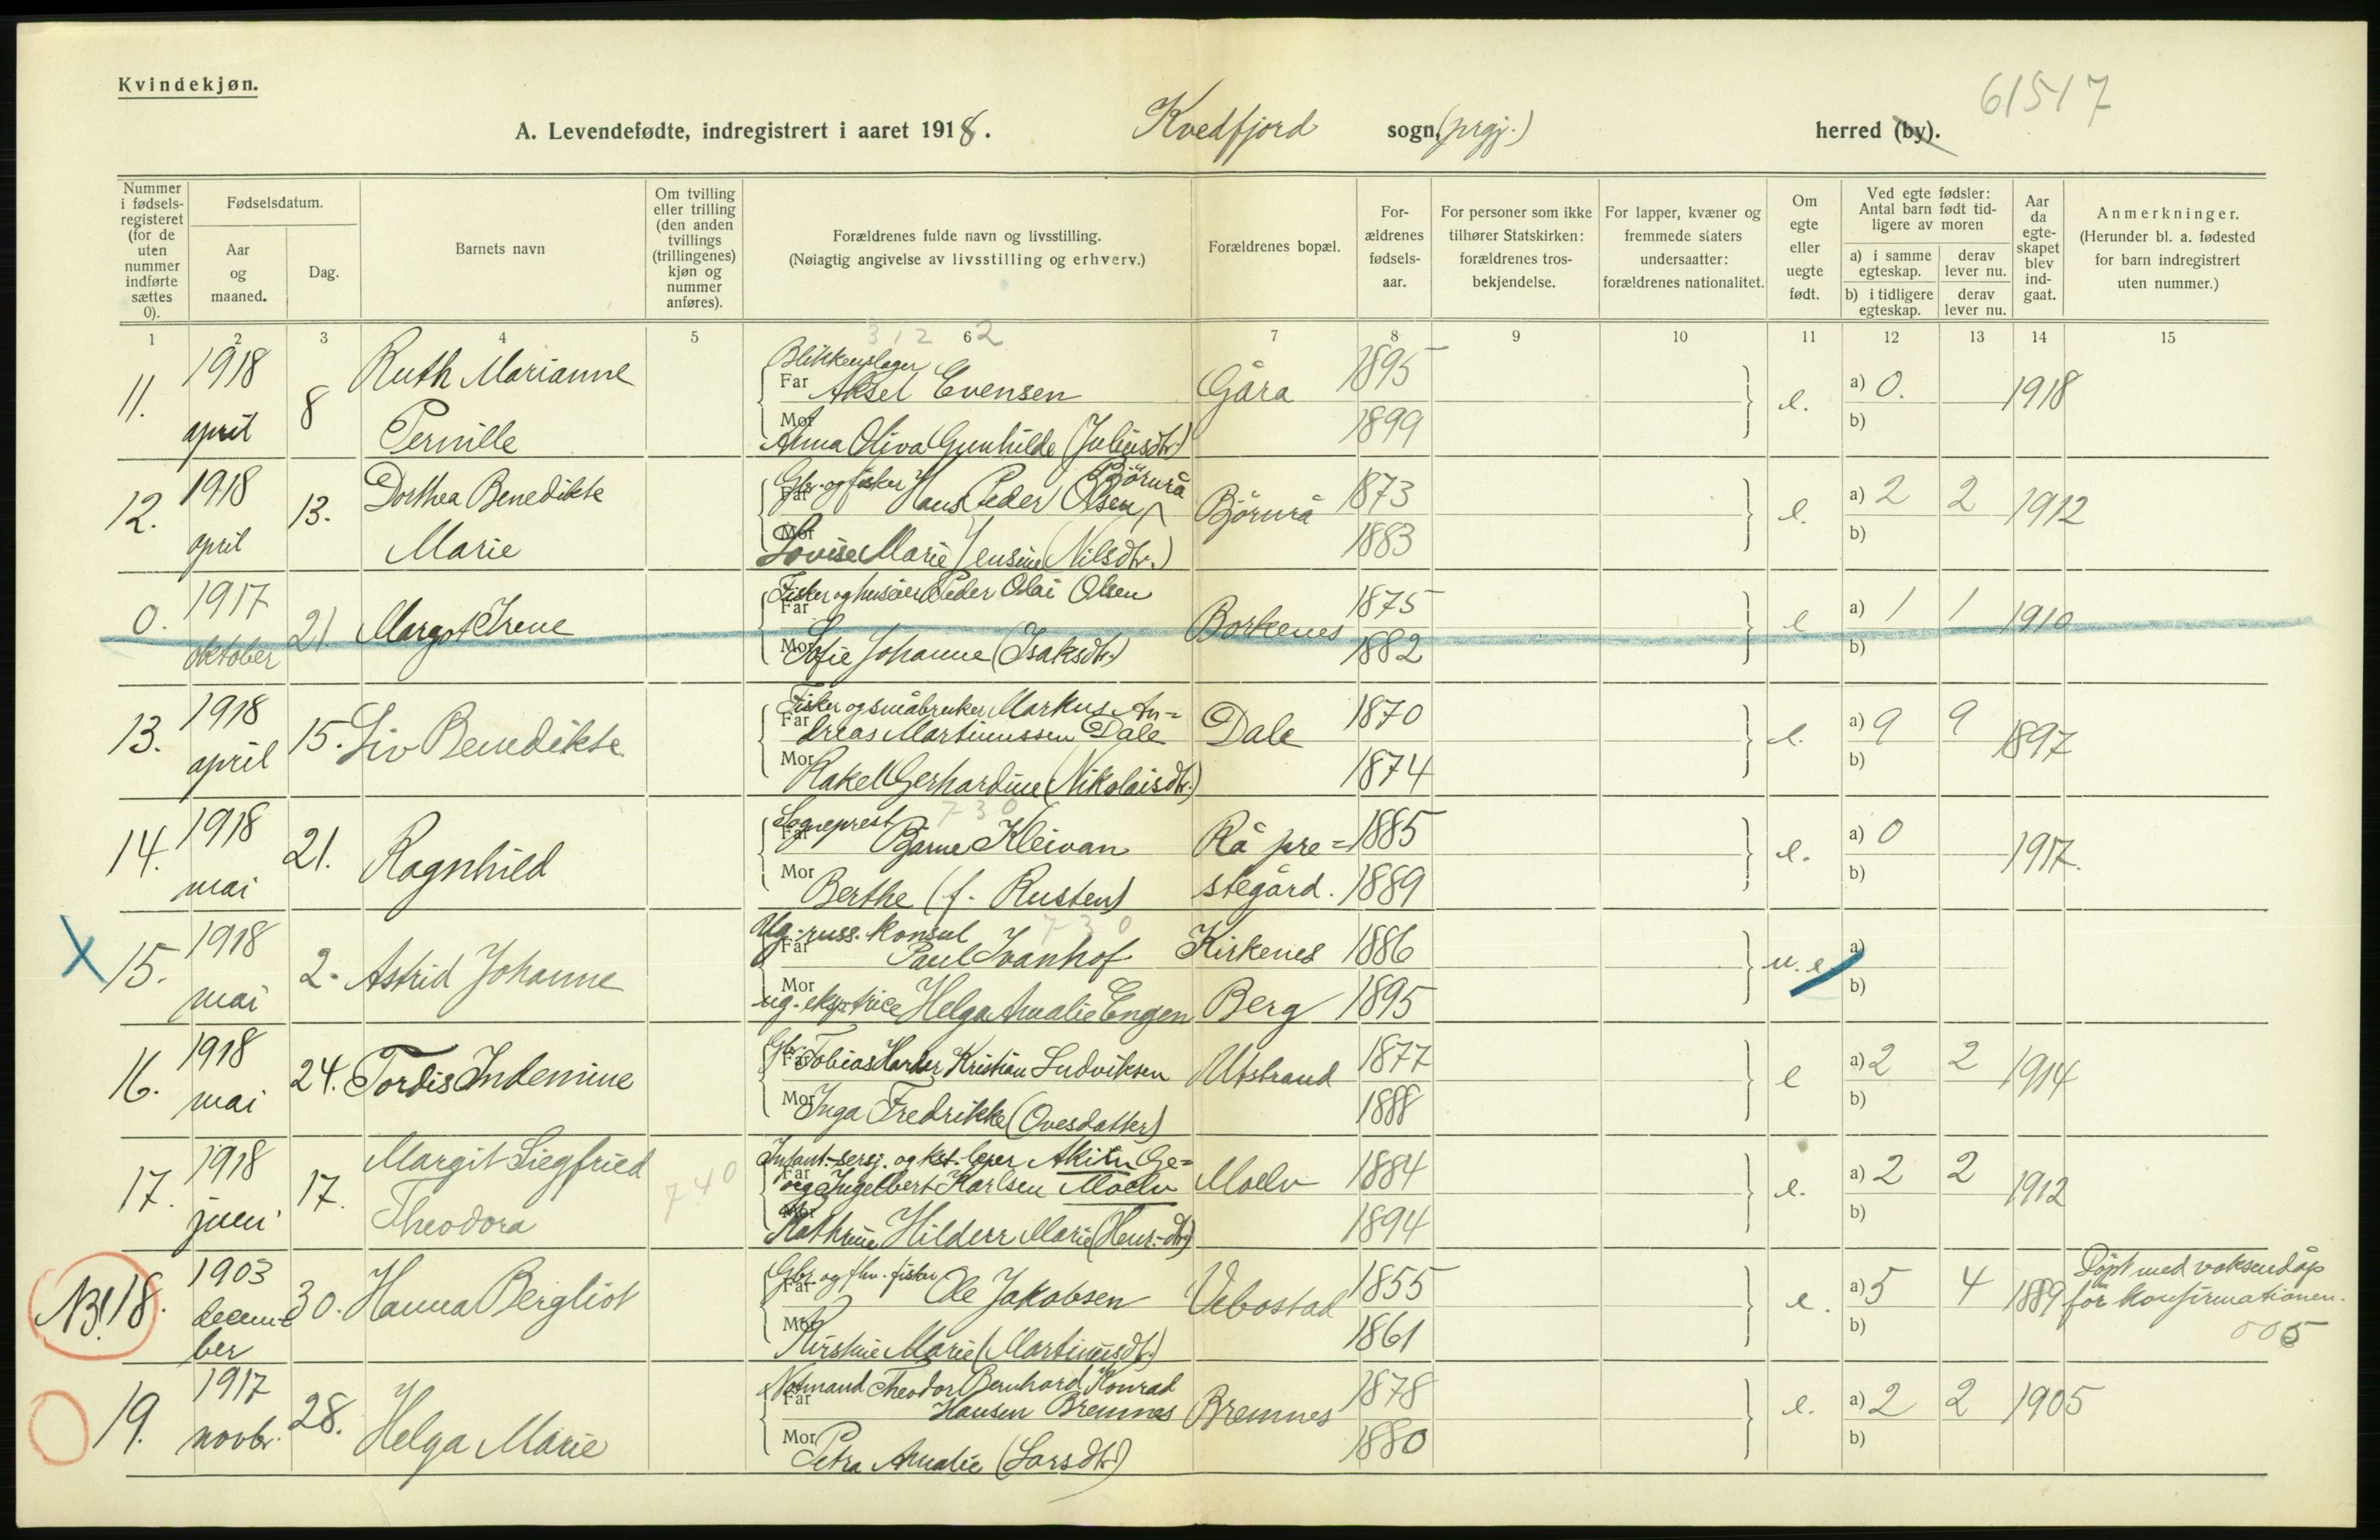 Kvindekjøn.
61517
A. Levendefødte, indregistrert i aaret 1918. Kvedfjord sogn, (prgj.) herred (by).
Nummer i fødselsregisteret (for de uten nummer indførte sættes 0).
Fødselsdatum.
Aar og maaned.
Dag.
Barnets navn
Om tvilling eller trilling (den anden tvillings (trillingenes) kjøn og nummer anføres).
Forældrenes fulde navn og livsstilling.
(Nøiagtig angivelse av livsstilling og erhverv.)
Forældrenes bopæl.
Forældrenes fødselsaar.
For personer som ikke tilhører Statskirken: forældrenes trosbekjendelse.
For lapper, kvæner og fremmede staters undersaatter: forældrenes nationalitet.
Om egte eller uegte født.
Ved egte fødsler: Antal barn født tidligere av moren
a) i samme egteskap. derav lever nu.
b) i tidligere egteskap. derav lever nu.
Aar da egteskapet blev indgaat.
Anmerkninger.
(Herunder bl. a. fødested for barn indregistrert uten nummer.)
1 2 3 4 5 6 7 8 9 10 11 12 13 14 15
312 2
11. 1918 april 8 Ruth Marianne Pernille
Blikkenslager
Far Aksel Evensen Gåra 1895 e. a) 0. 1918
Mor Anna Oliva Gunhilde (Juliusdtr.) 1899 b)
12. 1918 april 13. Dorthea Benedikte Marie
Far Gbr. og fisker Hans Peder Olsen Börurå Börurå 1873 e. a) 2 2 1912
Mor Lovise Marie Jensine (Nilsdtr.) 1883 b)
0. 1917 oktober 21. Margot Irene
Far Fisker og huseier Peder Olai Olsen Borkenes 1875 e a) 1 1 1910
Mor Sofie Johanne (Isaksdtr.) 1882 b)
13. 1918 april 15. Liv Benedikte
Far Fisker og småbruker Markus An=
dreas Martinussen Dale Dale 1870 e. a) 9 9 1897
Mor Rakel Gerhardine (Nikolaisdtr.) 1874 b)
14. 1918 mai 21. Ragnhild
Sogneprest 730
Far Bjarne Kleivan Rå pre= 1885 e. a) 0 1917.
Mor Berthe (f. Rusten) stegård. 1889 b)
X 15. 1918 mai 2. Astrid Johanne
Ug. russ. konsul 730
Far Paul Ivanhof Kirkenes 1886 u. e. a)
Mor ug. Helga Amalie Engen Berg 1895 b)
16. 1918 mai 24. Tordis Indemine
Far Gbr. Tobias Harder Kristian Ludviksen Utstrand 1877 e a) 2 2 1914
Mor Inga Fredrikke (Ovesdatter) 1888 b)
17. 1918 juni 17. Margit Siegfried Theodora 740
Infant.-sersj. og Akitn Ge=
Far org Ingelbert Karlsen Moelv Moelv 1884 e. a) 2 2 1912
Mor Kathrine Hilderr Marie (Henr.-dtr.) 1894 b)
NB! 18. 1903 decem= ber 30. Hanna Bergliot
Far Gbr. og fhv. fisker Ole Jakobsen Vebostad 1855 e. a) 5 4 1889 Döpt med voksendåp
för konfirmationen.
Mor Kirstine Marie (Martinusdtr.) 1861 b) 005
19. 1917 novbr. 28. Helga Marie
Far Notmand Theodor Bernhard Konrad
Hansen Bremnes Bremnes 1878 e. a) 2 2 1905
Mor Petra Amalie (Larsdtr.) 1880 b)